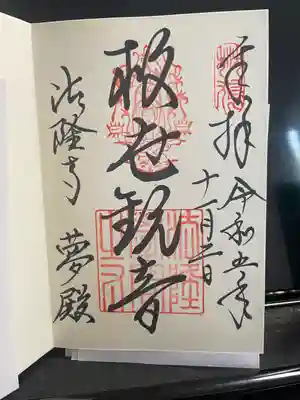 奉拝 令和五年
十一月二日
救世観音
法隆寺 夢殿